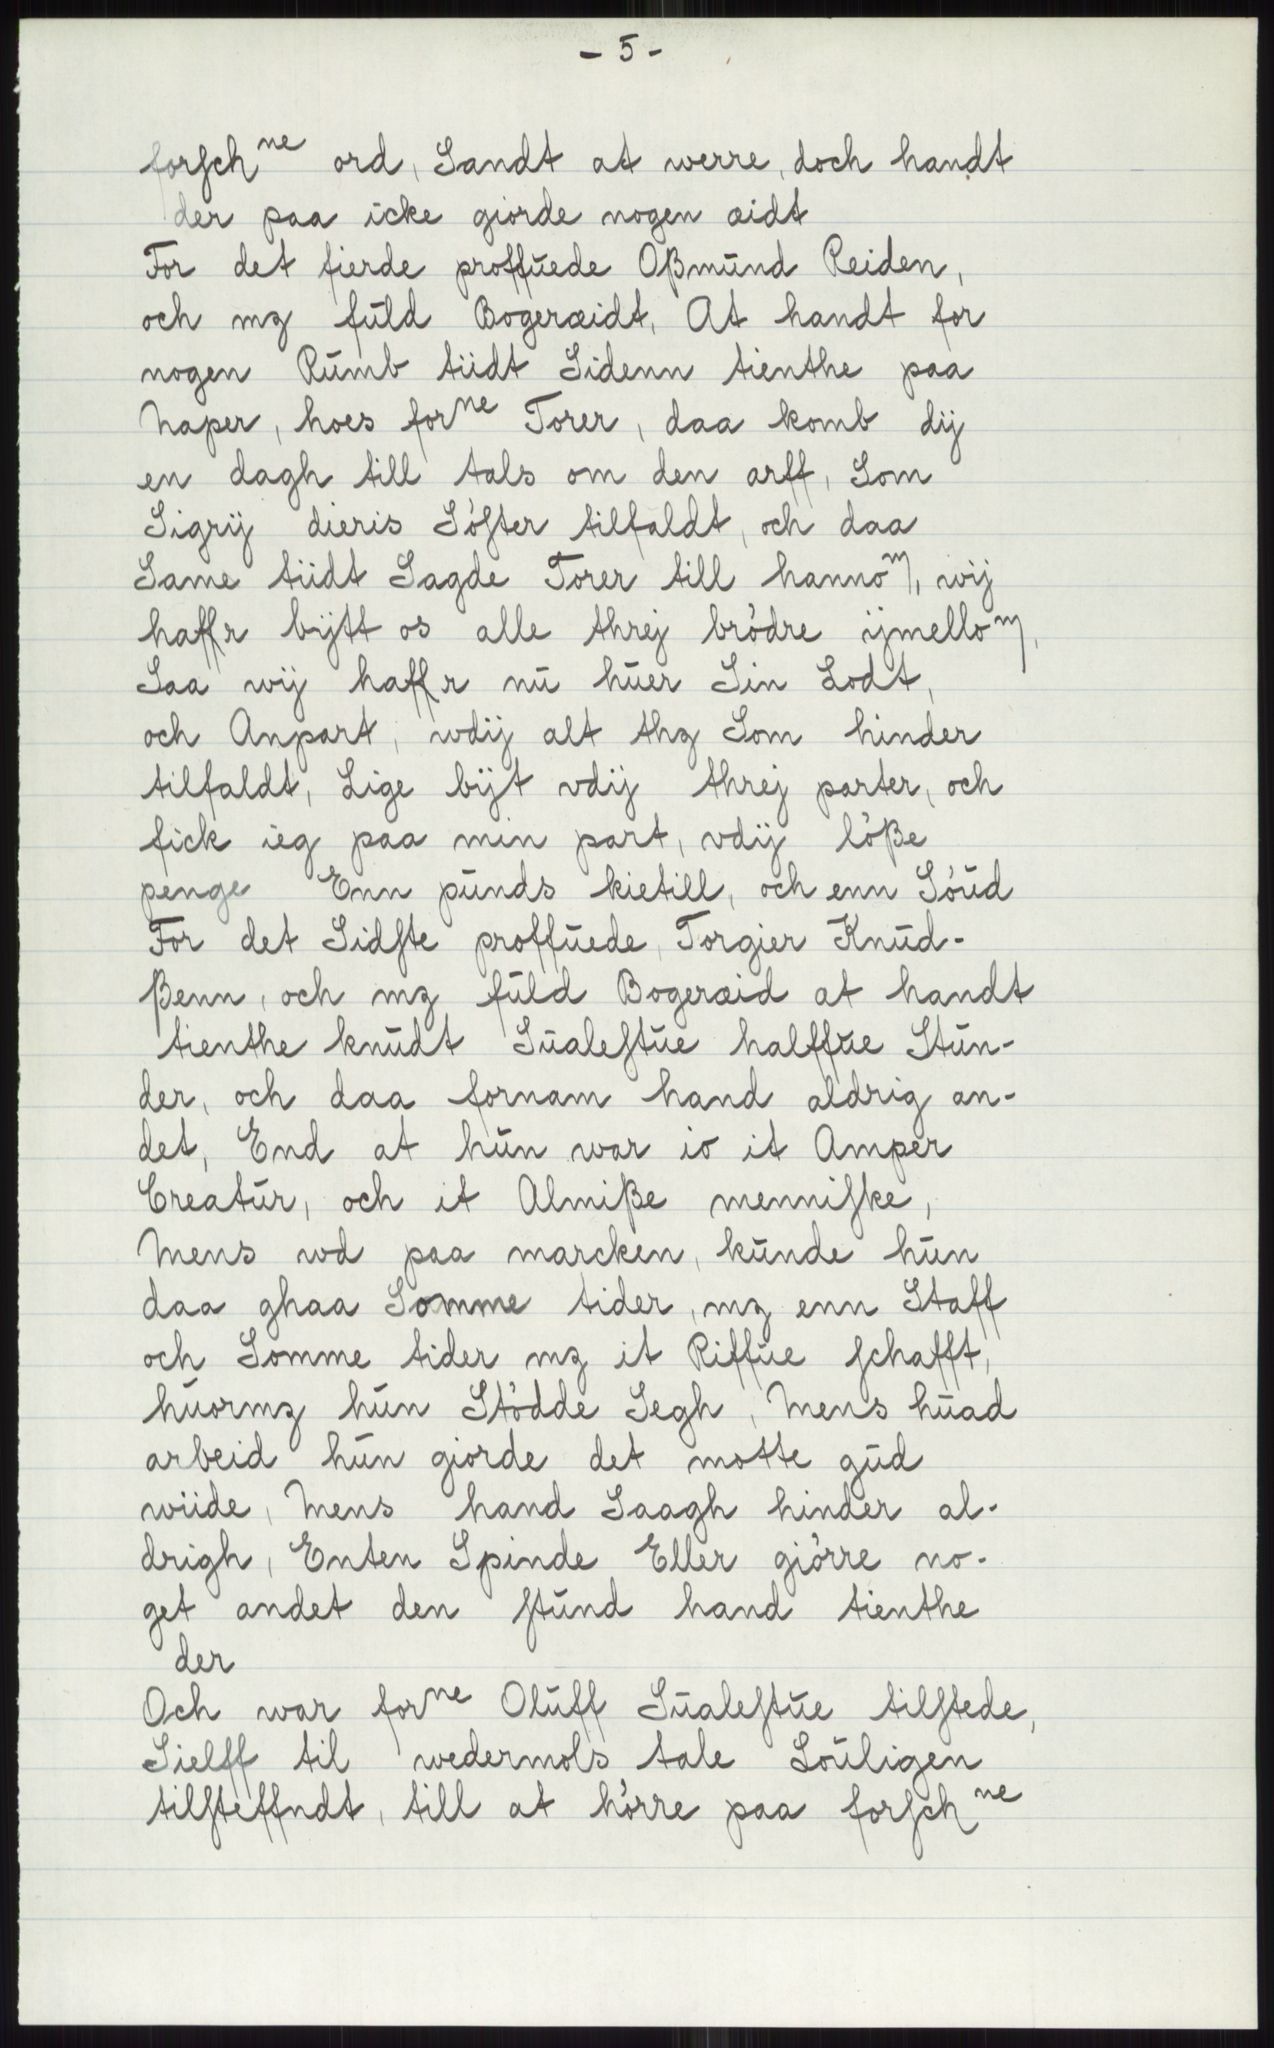 - 5 -
forſch^ne ord, Sandt at werre, doch handt
der paa icke giorde nogen æidt
For det fierde proffūede Oßmūnd Reiden,
och mz fūld Bogeræidt, At handt for
nogen Rūmb tiidt Sidenn tienthe paa
Naper, hoes for^ne Torer, daa komb dij
en dagh till tals om den arff, Som
Sigrij dieris Söſter tilfaldt, och daa
Same tiidt Sagde Torer till hanno^m, wij
haffr bijtt os alle threj brödre ijmello^m,
Saa wij haffr nū hūer Sin Lodt,
och Anpart, wdij alt thz Som hinder
tilfaldt, Lige bijt vdij threj parter, och
fick ieg paa min part, vdij löße
penge Enn pūnds kietill, och enn Söūd
For det Sidſte proffūede, Torgier Knūd-
ßenn, och mz fūld Bogeræid at handt
tienthe knūdt Sūaleſtūe halffūe Stūn-
der, och daa fornam hand aldrig an-
det, End at hūn war io it Amper
Creatūr, och it Almiße menniſke,
Mens wd paa marcken, kūnde hūn
daa ghaa Somme tider, mz enn Staff
och Somme tider mz it Riffūe ſchafft,
hūormz hūn Stödde Segh, Mens hūad
arbeid hūn giorde det motte gūd
wiide, Mens hand Saagh hinder al-
drigh, Enten Spinde Eller giörre no-
get andet den ſtūnd hand tienthe
der
Och war for^ne Olūff Sūaleſtūe tilſtede,
Sielff til wedermols tale Loūligen
tilſteffndt, till at hörre paa forſch^ne